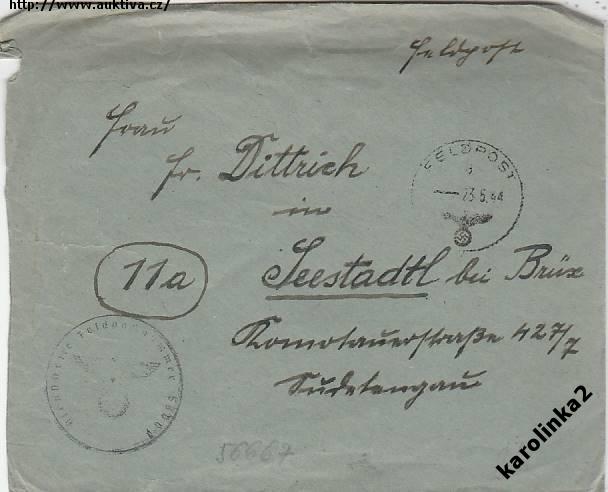 http://www.auktiva.cz/
Feldpost
Frau
Fr. Dittrich
in
Seestadtl bei Brüx
Komotauerstraße 427/7
Sudetengau
11a
FELDPOST
23.5.44
Feldpostnummer
56667
karolinka2